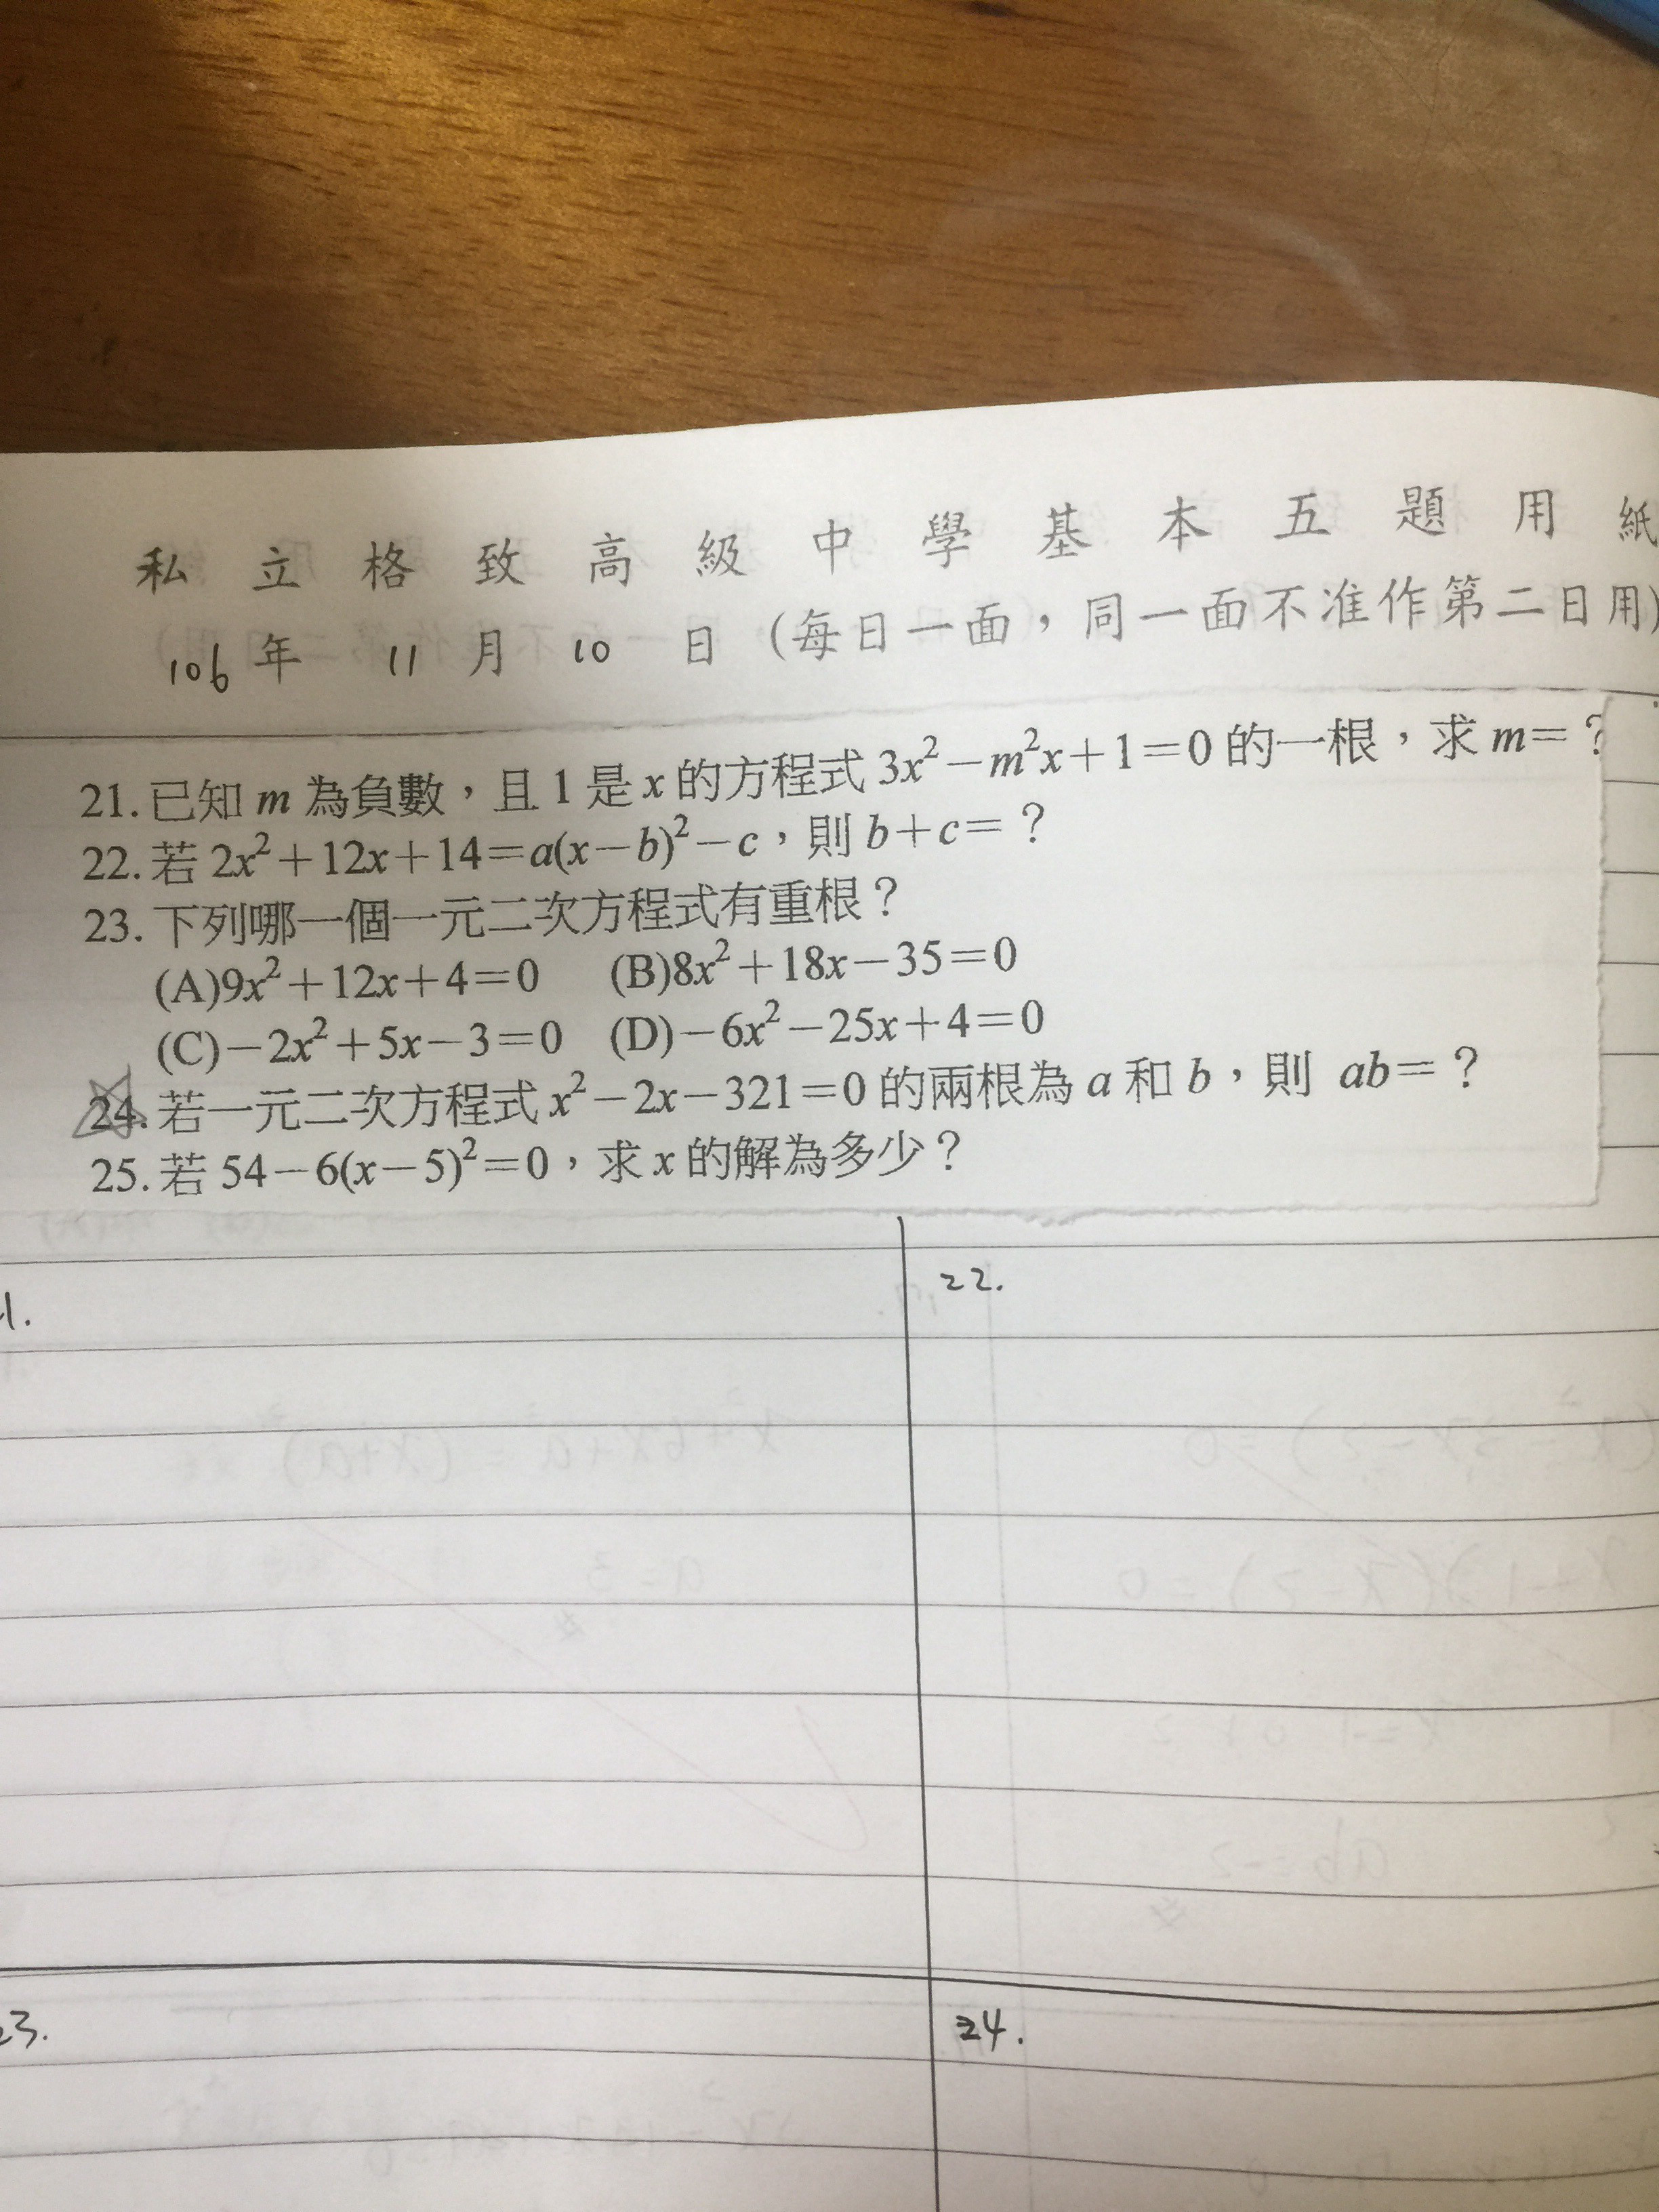 私立格致高級中學基本五題用紙
106年 11月 10日 (每日一面，同一面不准作第二日用)
21.已知 m 為負數，且 1 是 x 的方程式 3x²－m²x＋1＝0 的一根，求 m＝？
22.若 2x²＋12x＋14＝a(x－b)²－c，則 b＋c＝？
23.下列哪一個一元二次方程式有重根？
(A)9x²＋12x＋4＝0 (B)8x²＋18x－35＝0
(C)－2x²＋5x－3＝0 (D)－6x²－25x＋4＝0
24.若一元二次方程式 x²－2x－321＝0 的兩根為 a 和 b，則 ab＝？
25.若 54－6(x－5)²＝0，求 x 的解為多少？
1. 22.
23. 24.